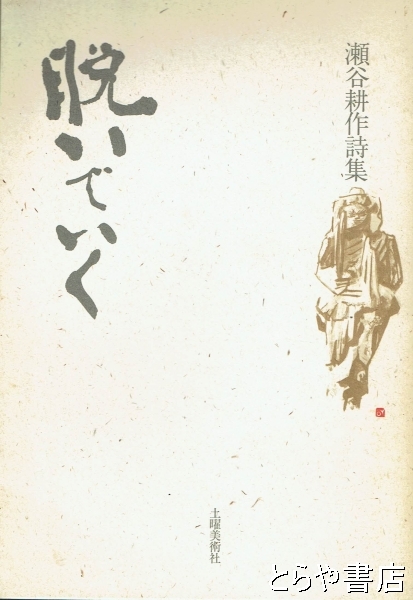 瀬谷耕作詩集
脱いでいく
土曜美術社
とらや書店